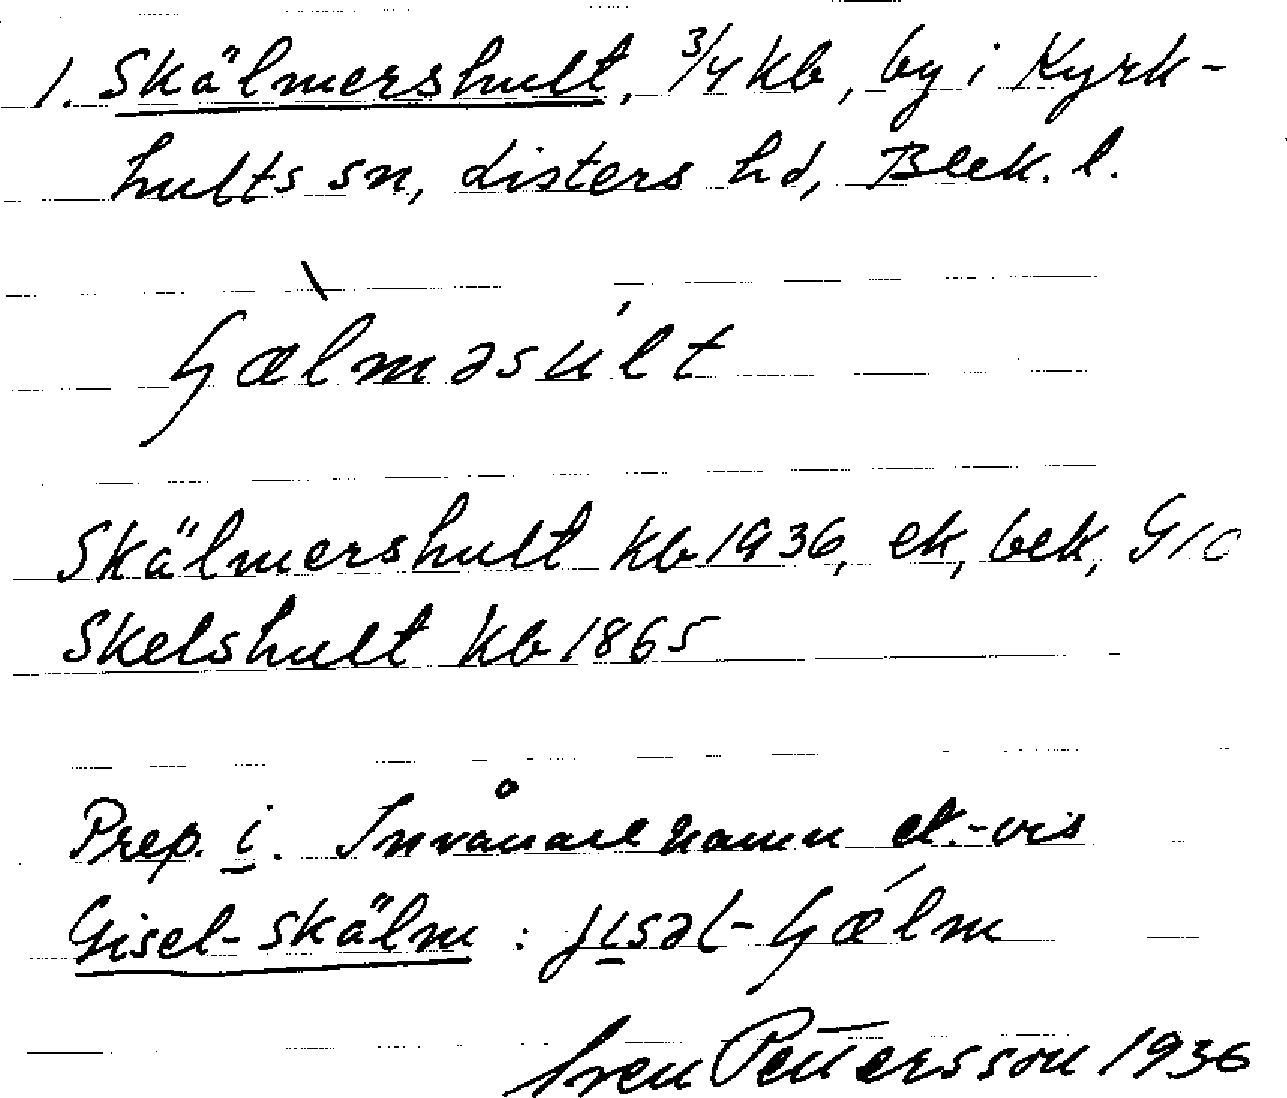 1. Skälmershult, 3/4 kb, by i Kyrk-
hults sn, Listers hd, Blek. l.
ʃæ̀lməsúlt
Skälmershult kb 1936, ek, bek, G10
Skelshult kb 1865
Prep. i. Invånarenamn ek.-vis
Gisel-skälm : jɩsəl-ʃǽlm
Sven Pettersson 1936